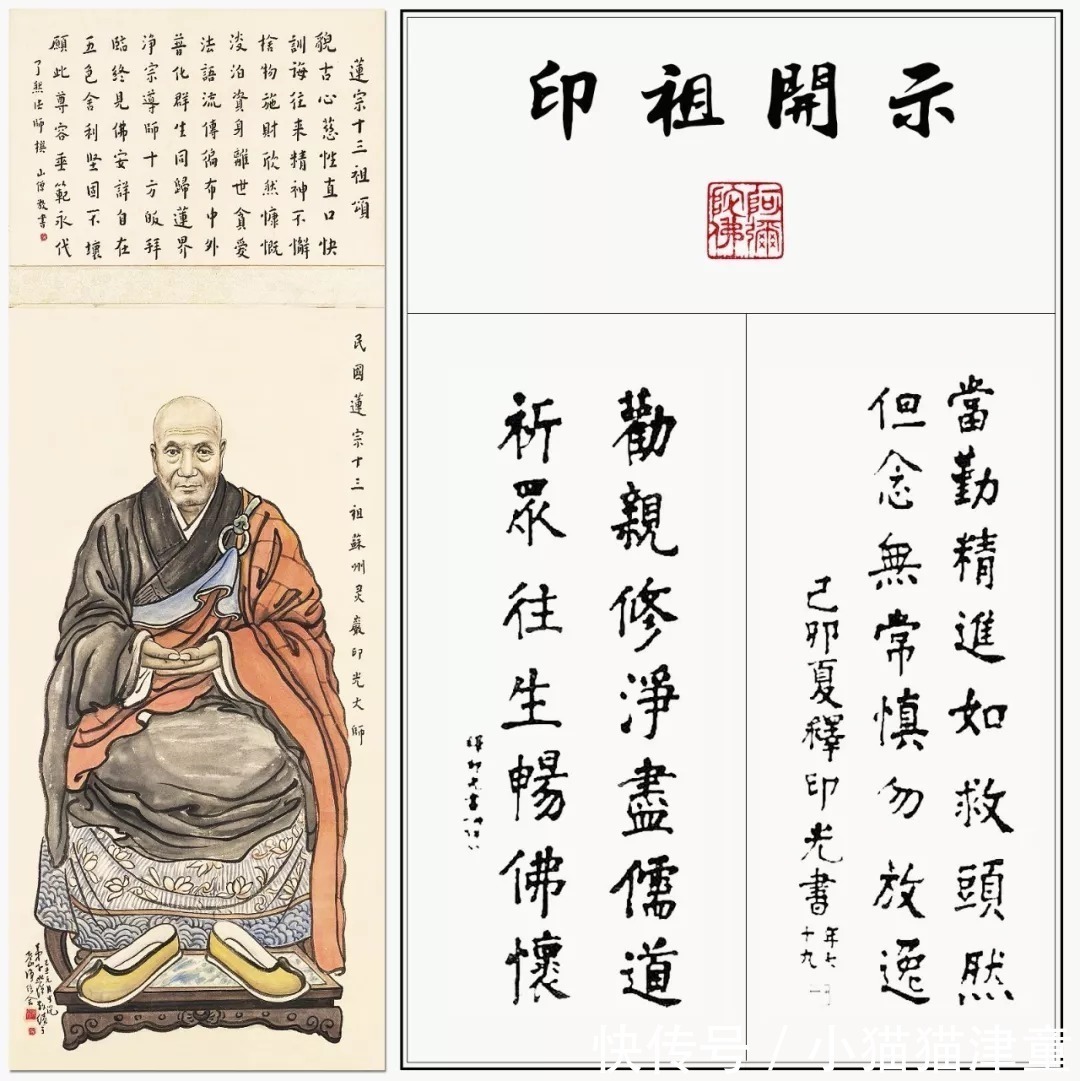 蓮宗十三祖頌
貌古心慈性直口快
訓誨往来精神不懈
捨物施財欣然慷慨
淡泊資身離世貪愛
法語流傳徧布中外
普化群生同歸蓮界
净宗導師十方皈拜
臨終見佛安詳自在
五色舍利堅固不壞
願此尊容垂範永代
了然法師撰 山僧敬書
民國蓮宗十三祖蘇州灵巖印光大師
印祖開示
阿彌陀佛
當勤精進如救頭然
但念無常慎勿放逸
己卯夏釋印光書
年七十九
勸親修淨盡儒道
祈眾往生暢佛懷
快传号/小猫猫津童